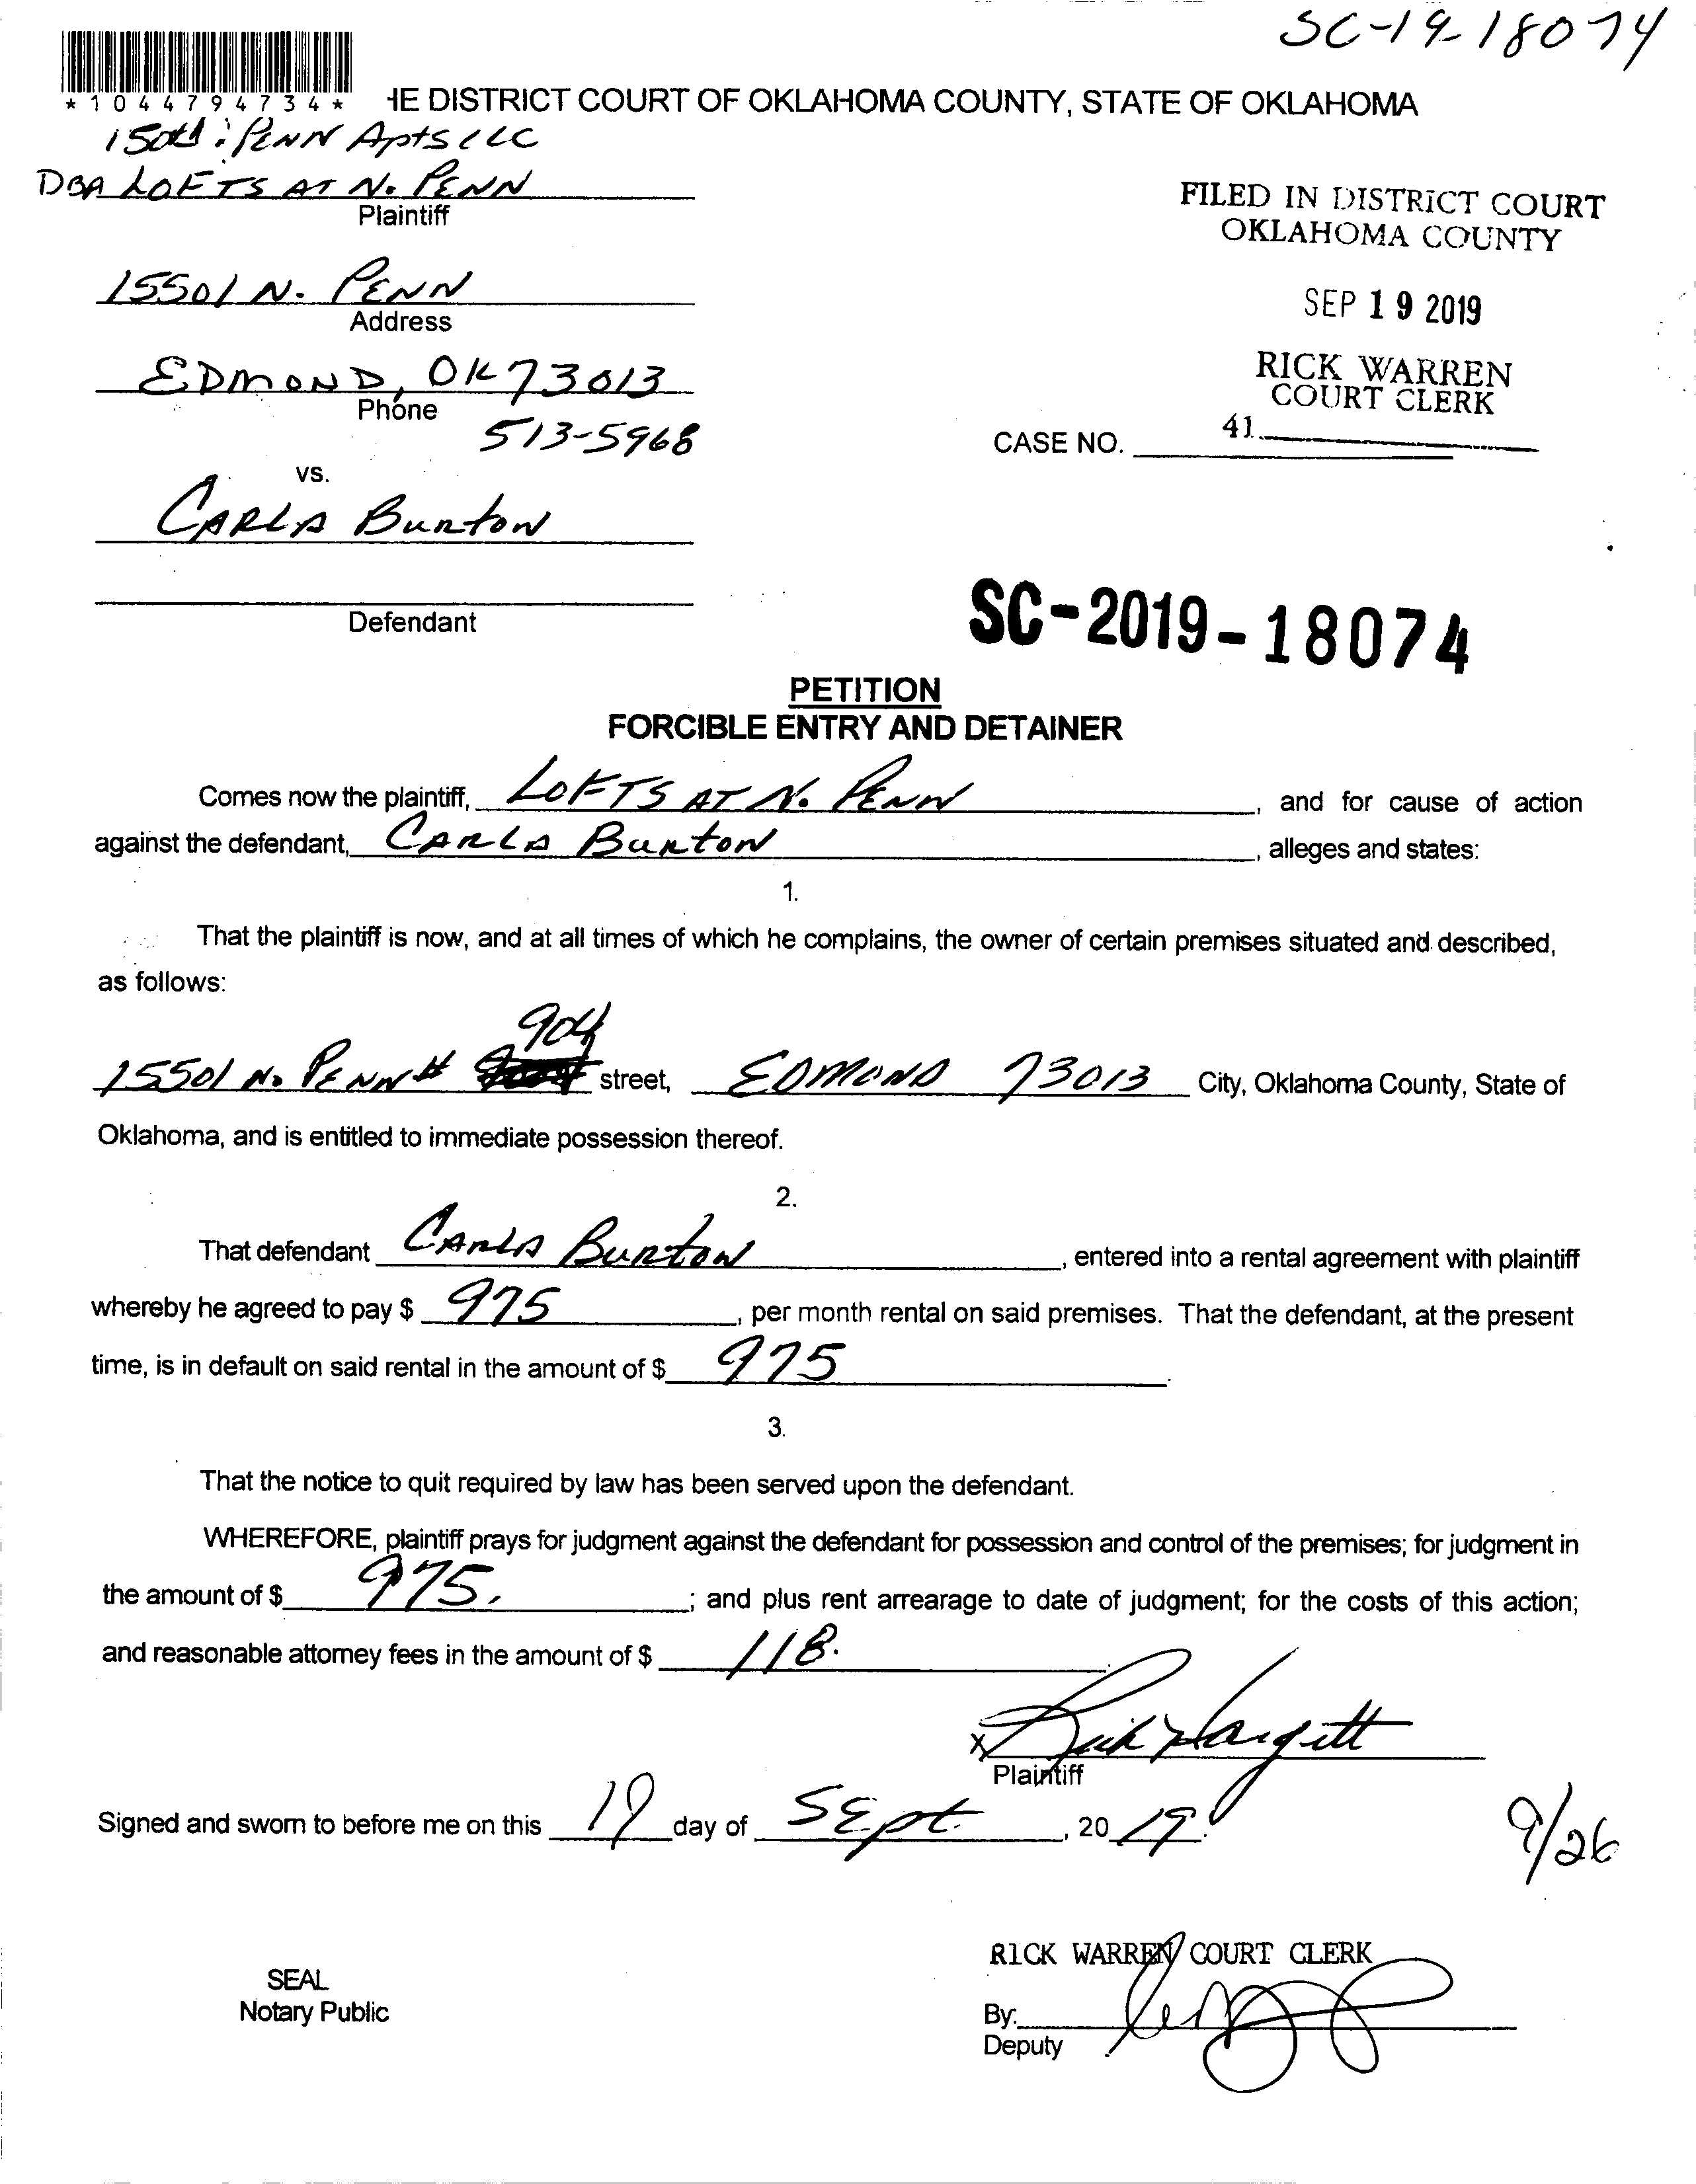 SC-19-18074
*1044794734*
HE DISTRICT COURT OF OKLAHOMA COUNTY, STATE OF OKLAHOMA
150th : PENN Apts LLC
DBA LOFTS AT N. PENN
Plaintiff
FILED IN DISTRICT COURT
OKLAHOMA COUNTY
15501 N. PENN
Address
SEP 19 2019
EDMOND, OK 73013
Phone
513-5968
RICK WARREN
COURT CLERK
41
CASE NO.
vs.
CARLA BURTON
Defendant
SC-2019-18074
PETITION
FORCIBLE ENTRY AND DETAINER
Comes now the plaintiff, LOFTS AT N. PENN, and for cause of action
against the defendant, CARLA BURTON, alleges and states:
1.
That the plaintiff is now, and at all times of which he complains, the owner of certain premises situated and described,
as follows:
904
15501 N. PENN # street, EDMOND 73013 City, Oklahoma County, State of
Oklahoma, and is entitled to immediate possession thereof.
2.
That defendant CARLA BURTON, entered into a rental agreement with plaintiff
whereby he agreed to pay $ 975, per month rental on said premises. That the defendant, at the present
time, is in default on said rental in the amount of $ 975.
3.
That the notice to quit required by law has been served upon the defendant.
WHEREFORE, plaintiff prays for judgment against the defendant for possession and control of the premises; for judgment in
the amount of $ 975.; and plus rent arrearage to date of judgment; for the costs of this action;
and reasonable attorney fees in the amount of $ 118.
X Rick Hargett
Plaintiff
Signed and sworn to before me on this 19 day of SEpt., 20 19.
9/26
RICK WARREN COURT CLERK
SEAL
Notary Public
By:
Deputy